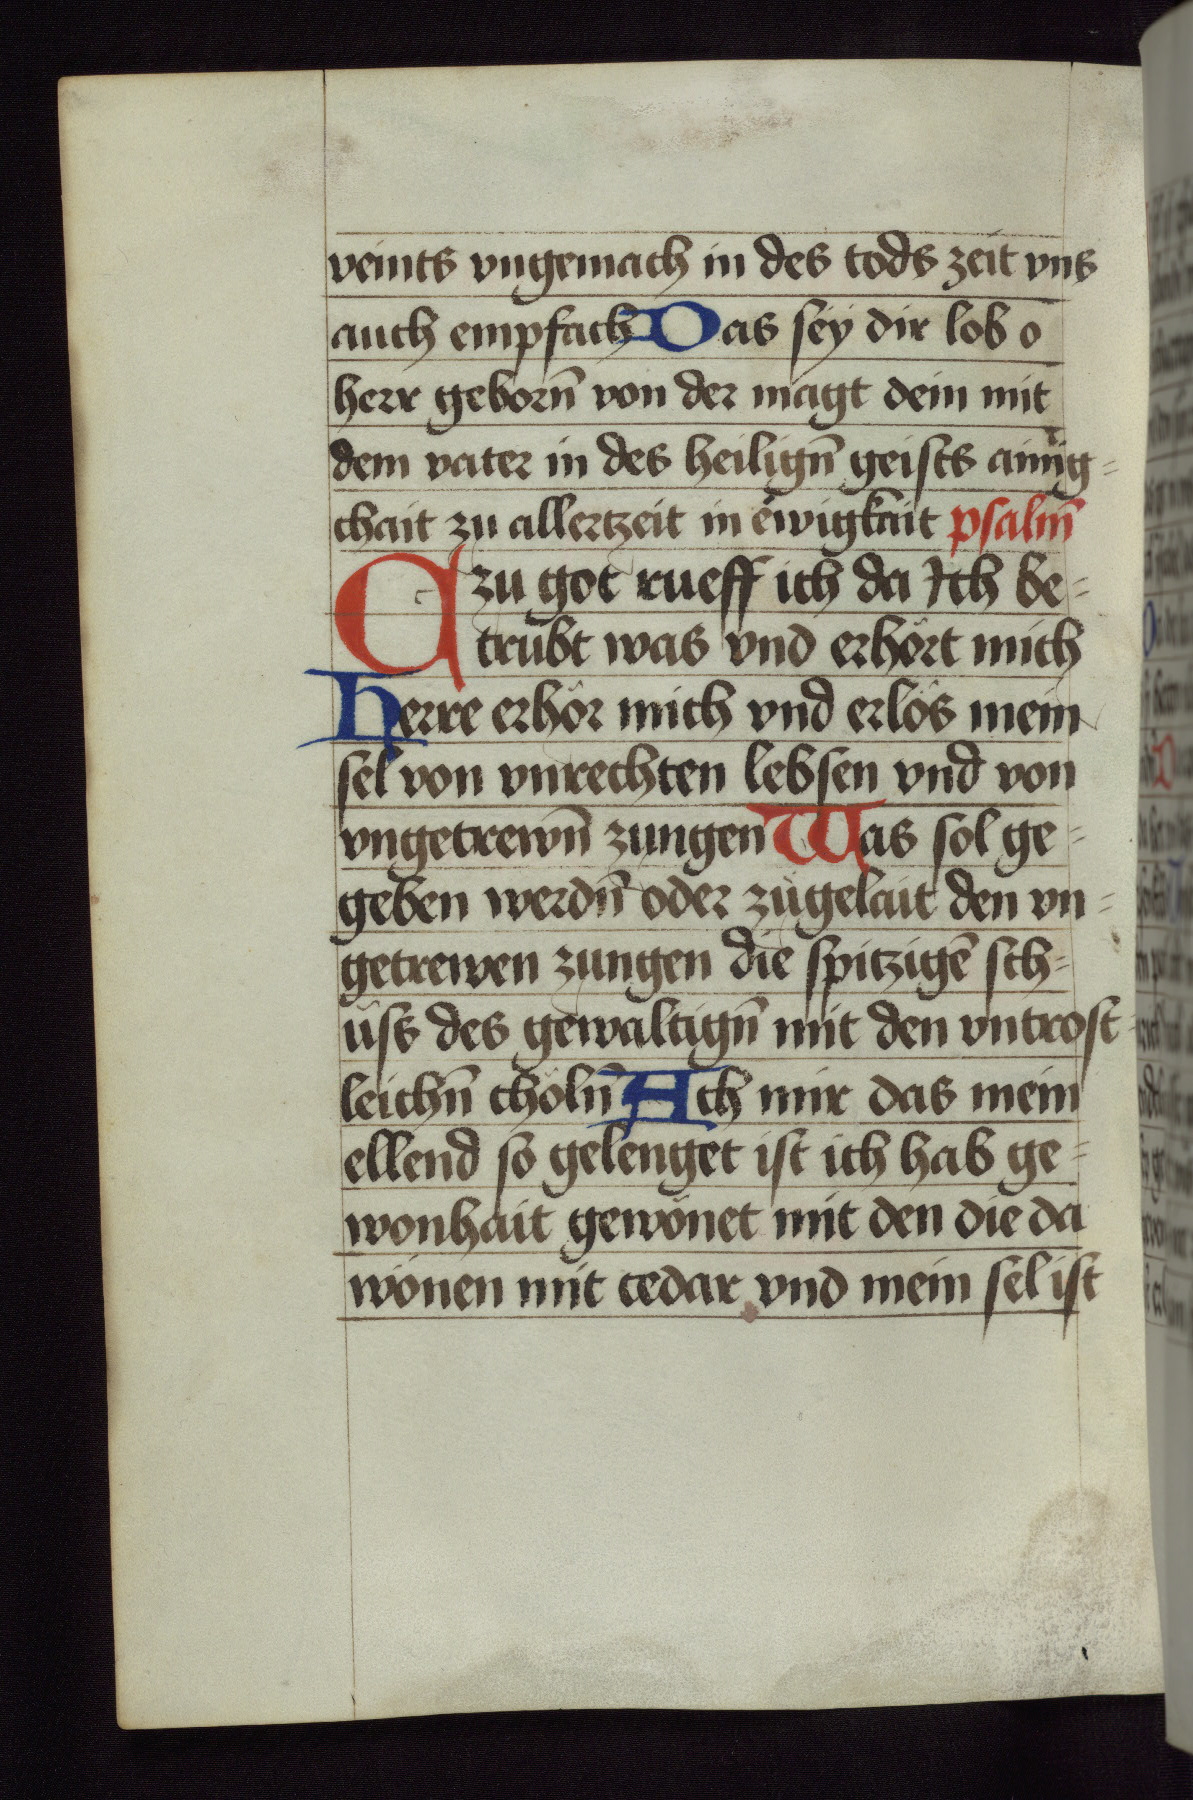 veints vngemach in des tods zeit vns
auch empfach Das sey dir lob o
herr geborn̄ von der magt dein mit
dem vater in des heilign̄ geists ainig=
chait zu allertzeit in ewigkait psalm̄
C zu got rueff ich da Ich be=
trübt was vnd erhört mich
Herre erhör mich vnd erlös mein
sel von vnrechten lebsen vnd von
vngetrewn̄ zungen Was sol ge=
geben werdn̄ oder zůgelait den vn=
getrewen zungen die spitzigē sch=
üss des gewaltign̄ mit den vntrost=
leichn̄ choln̄ Ach mir das mein
ellend so gelenget ist ich hab ge=
wonhait gewönet mit den die da
wonen mit cedar vnd mein sel ist